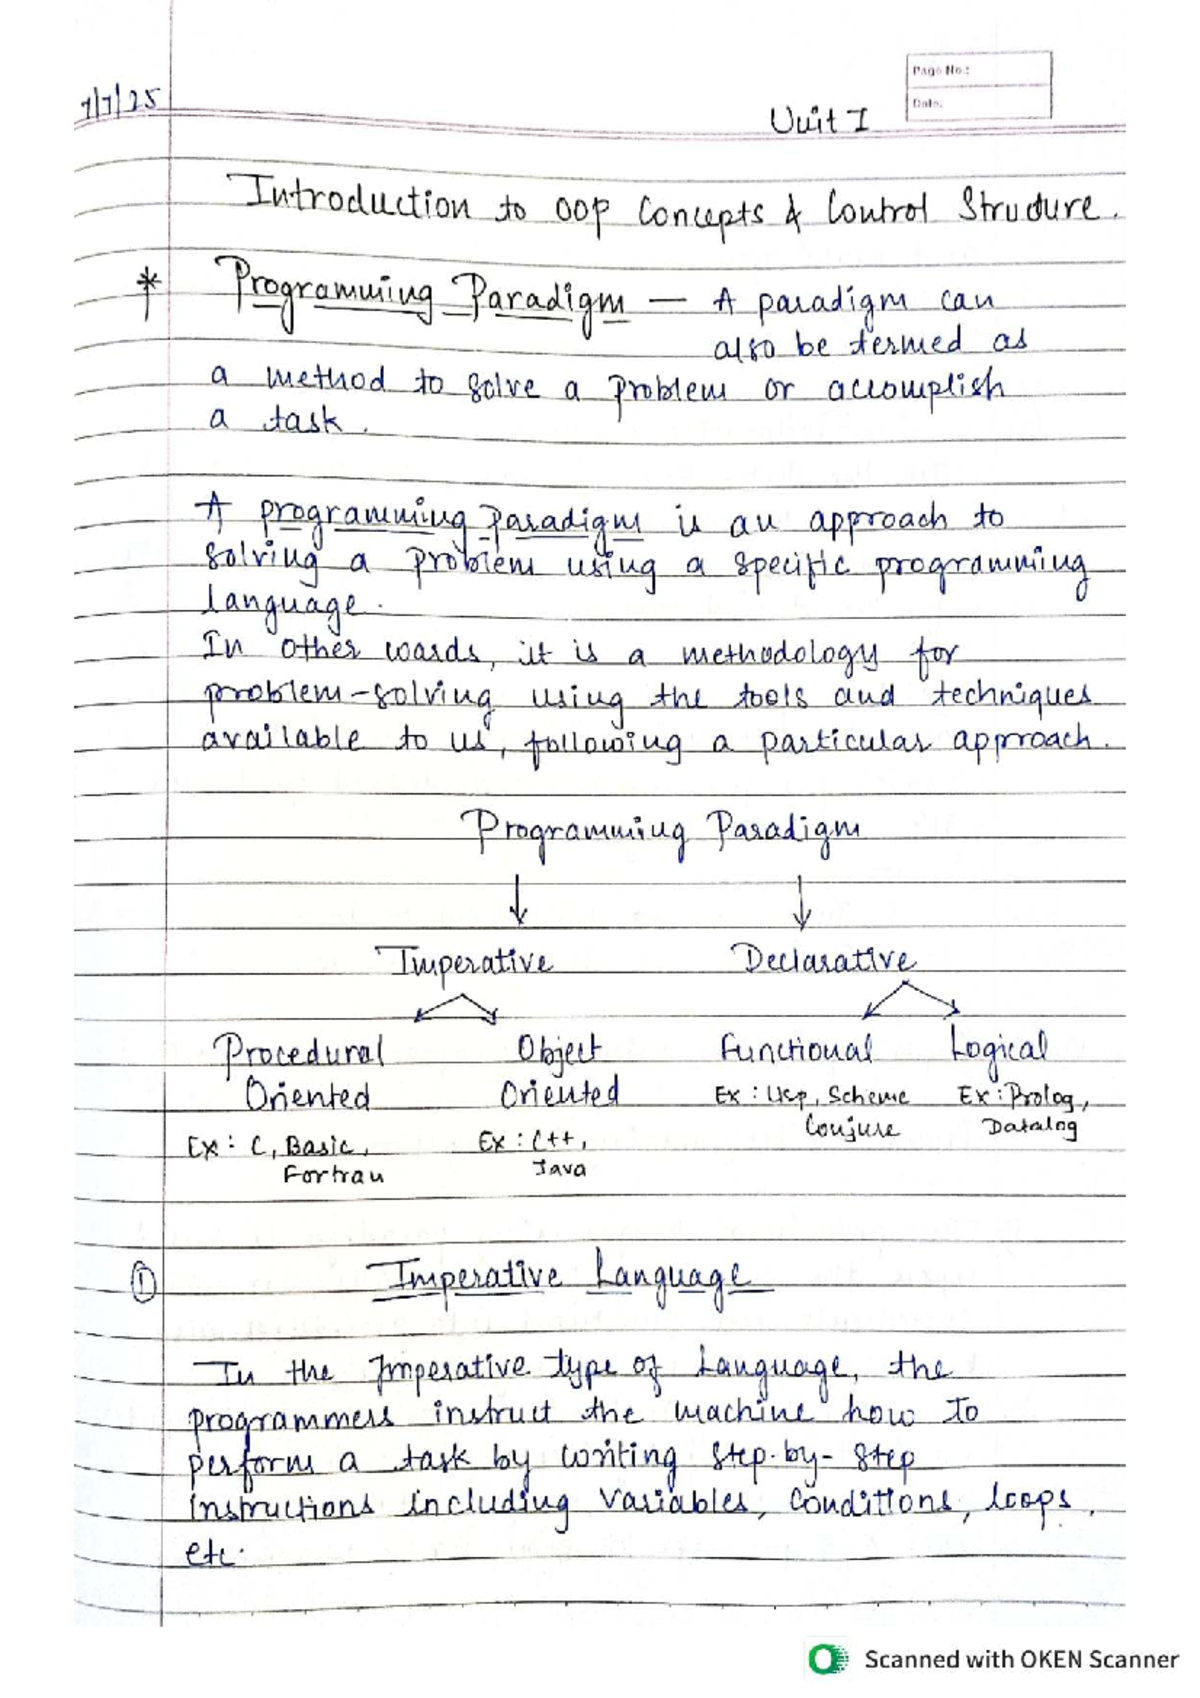 Page No.:
Date:
7/7/25
Unit I
Introduction to OOP Concepts & Control Structure.
* Programming Paradigm — A paradigm can
also be termed as
a method to solve a problem or accomplish
a task.
A programming paradigm is an approach to
solving a problem using a specific programming
language.
In other words, it is a methodology for
problem-solving using the tools and techniques
available to us, following a particular approach.
Programming Paradigm
Imperative Declarative
Procedural Object Functional Logical
Oriented Oriented Ex: Lisp, Scheme Ex: Prolog,
Conjure Datalog
Ex: C, Basic, Ex: C++,
Fortran Java
① Imperative Language
In the Imperative type of Language, the
programmers instruct the machine how to
perform a task by writing step-by-step
instructions including variables, conditions, loops,
etc.
Scanned with OKEN Scanner